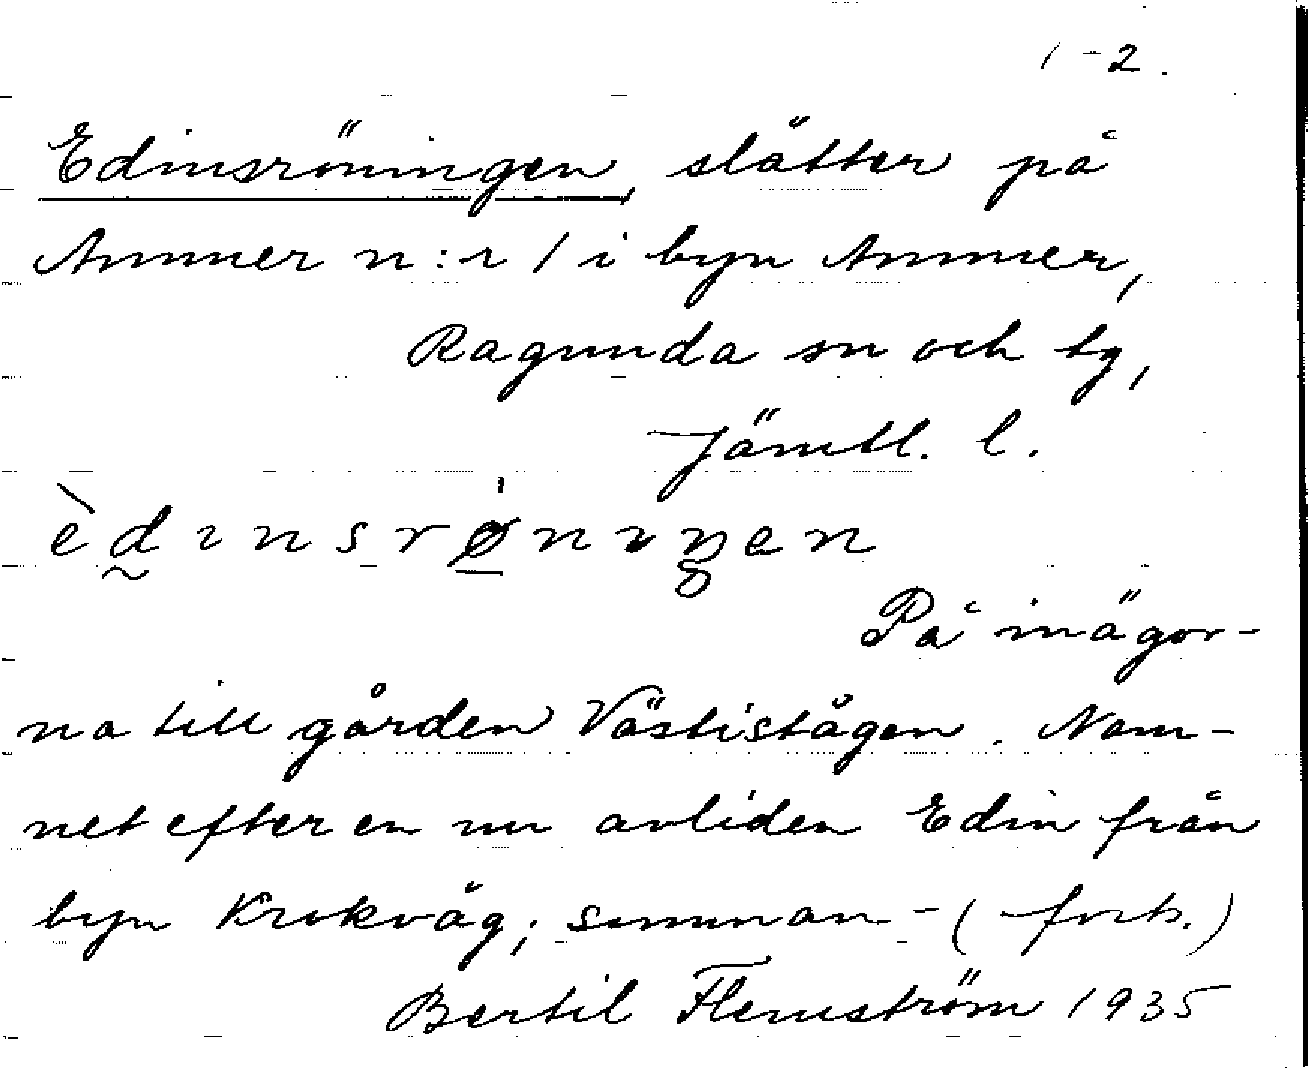 1-2.
Edinsröningen, slåtter på
Ammer n:r 1 i byn Ammer,
Ragunda sn och tg,
Jämtl. l.
èdınsrø̱nıŋen
På inägor-
na till gården Västistågen. Nam-
net efter en nu avliden Edin från
byn Krokvåg; samman- (forts.)
Bertil Flemström 1935